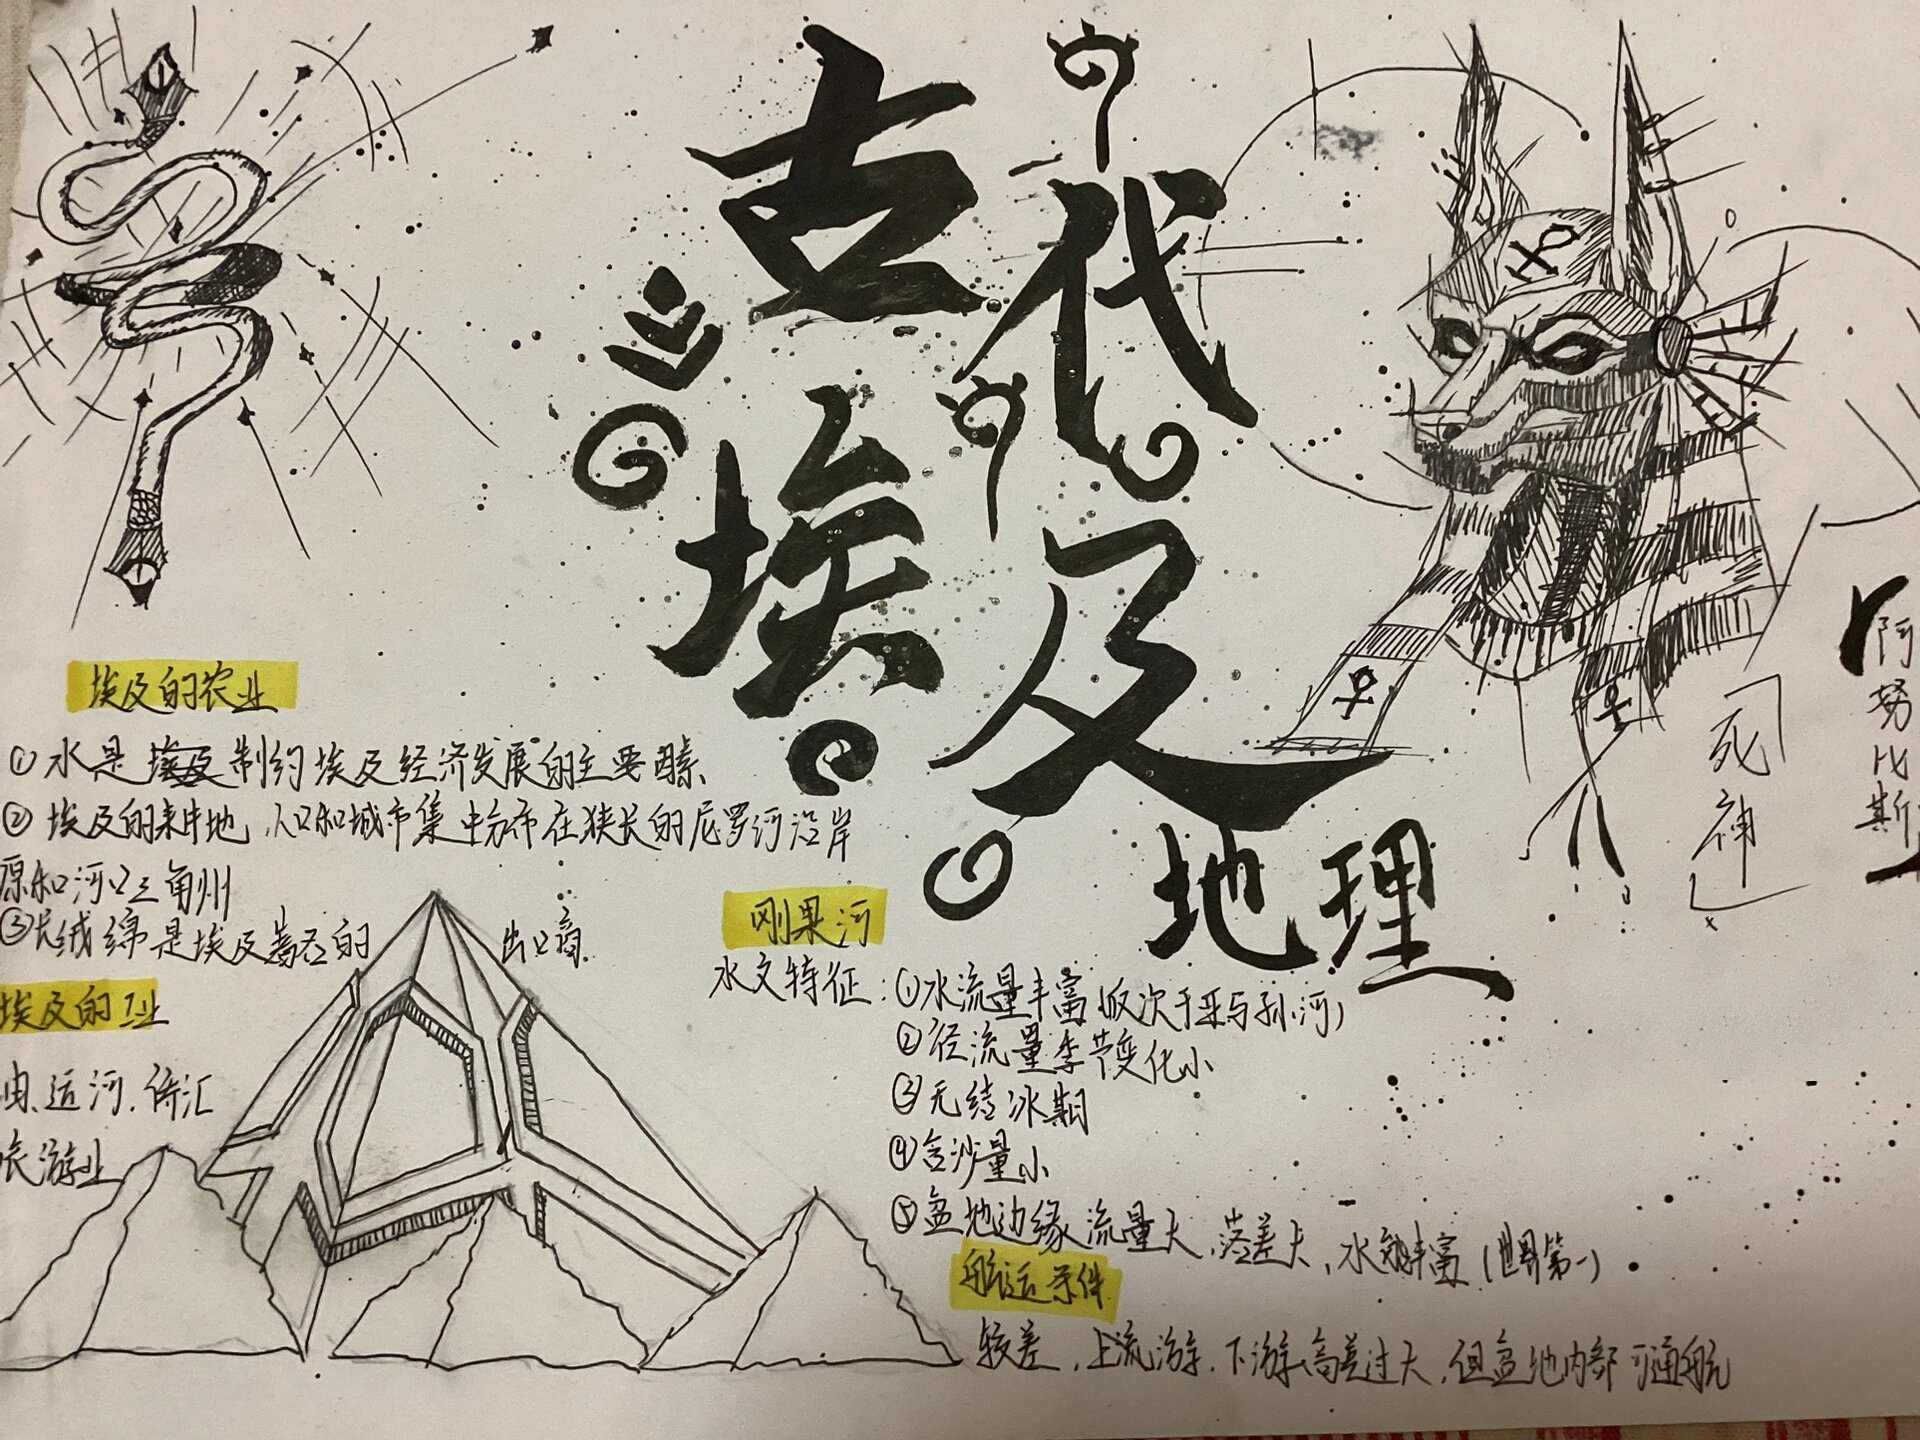 古代
埃及
地理
「阿努比斯」
「死神」
埃及的农业
①水是制约埃及经济发展的主要因素
②埃及的耕地、人口和城市集中分布在狭长的尼罗河沿岸
原和河口三角州
③长绒绵是埃及著名的出口商
埃及的工业
油、运河、侨汇
旅游业
刚果河
水文特征:①水流量丰富(仅次于亚马孙河)
②径流量季节变化小
③无结冰期
④含沙量小
⑤盆地边缘流量大、落差大、水能丰富(世界第一)
航运条件
较差、上游、下游高差过大、但盆地内部可通航